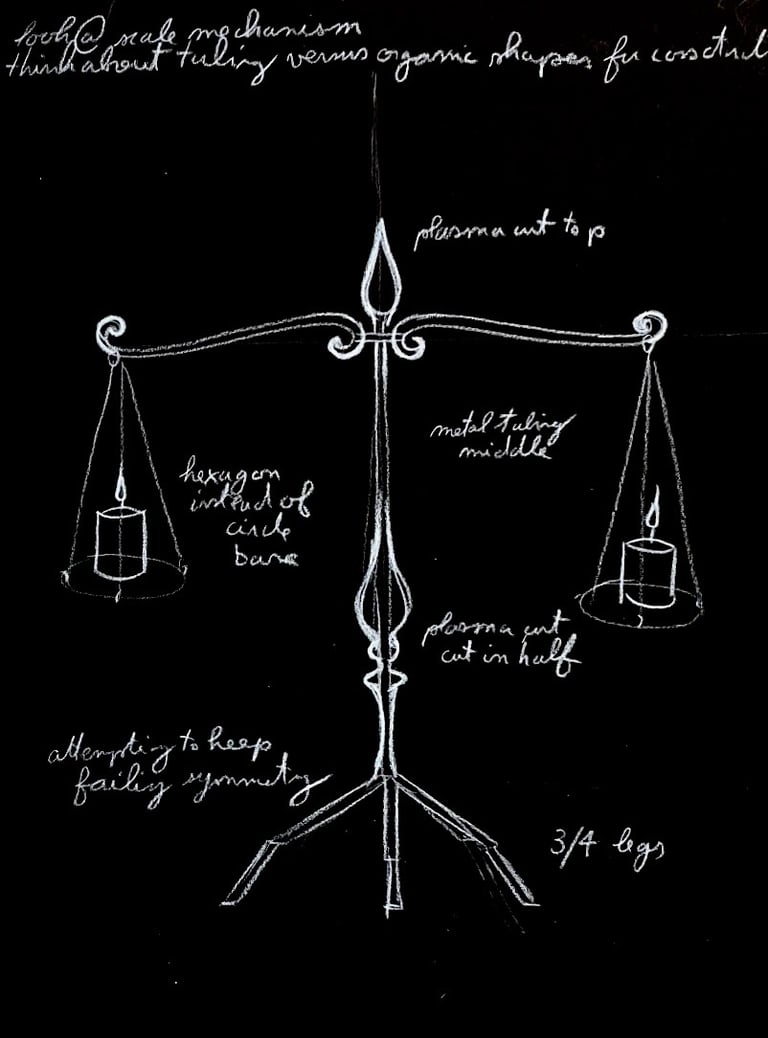 look@ scale mechanism
think about tubing versus organic shapes for
plasma cut top
metal tubing
middle
hexagon
instead of
circle
base
plasma cut
cut in half
attempting to keep
symmetry
3/4 legs